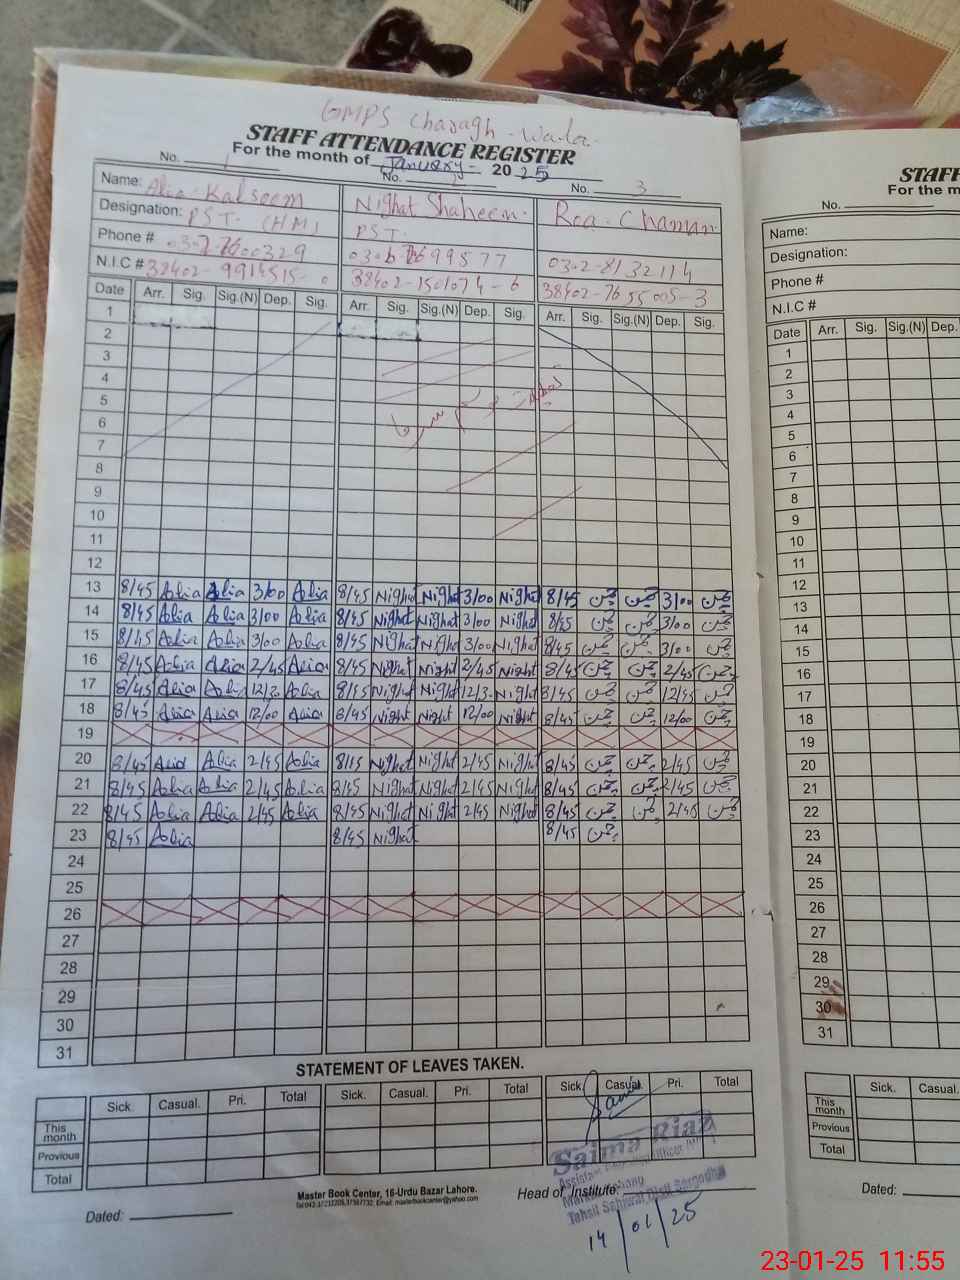 GMPS Charagh Wala
STAFF ATTENDANCE REGISTER
For the month of January 2025
No. 1 No. 2 No. 3
Name: Alia Kalsoom Nighat Shaheen Roa Chaman
Designation: PST (HM) PST
Phone # 0306 7699577 0302-8132114
N.I.C # 38402-9914515-0 38402-1501074-6 38402-7655005-3
Date Arr. Sig. Sig.(N) Dep. Sig. Arr. Sig. Sig.(N) Dep. Sig. Arr. Sig. Sig.(N) Dep. Sig.
1
2
3
4
5
6
7
8
9
10
11
12
13 8/45 Aolia Aolia 3/00 Aolia 8/45 Nighat Night 3/00 Night 8/45 چمن چمن 3/00 چمن
14 8/45 Aolia Aolia 3/00 Aolia 8/45 Nighat Night 3/00 Night 8/45 چمن چمن 3/00 چمن
15 8/45 Aolia Aolia 3/00 Aolia 8/45 Nighat Night 3/00 Nighat 8/45 چمن چمن 3/00 چمن
16 8/45 Aolia Alia 2/45 Alia 8/45 Nighat Night 2/45 Night 8/45 چمن چمن 2/45 چمن
17 8/45 Alia Aolia 12/3 Aolia 8/45 Night Night 12/3 Night 8/45 چمن چمن 12/45 چمن
18 8/45 Alia Alia 12/00 Aolia 8/45 Night Night 12/00 Night 8/45 چمن چمن 12/00 چمن
19
20 8/45 Alia Aolia 2/45 Aolia 8/45 Nighat Night 2/45 Night 8/45 چمن چمن 2/45 چمن
21 8/45 Aolia Aolia 2/45 Aolia 8/45 Night Night 2/45 Night 8/45 چمن چمن 2/45 چمن
22 8/45 Aolia Aolia 2/45 Aolia 8/45 Night Night 2/45 Night 8/45 چمن چمن 2/45 چمن
23 8/45 Aolia 8/45 Nighat 8/45 چمن
24
25
26
27
28
29
30
31
STATEMENT OF LEAVES TAKEN.
Sick. Casual. Pri. Total Sick. Casual. Pri. Total Sick. Casual. Pri. Total
This month
Previous
Total
Saima Riaz
Tehsil Sahiwal Distt Sargodha
Master Book Center, 16-Urdu Bazar Lahore.
Head of Institute:
Dated:
14/01/25
STAFF
For the m
No.
Name:
Designation:
Phone #
N.I.C #
Date Arr. Sig. Sig.(N) Dep.
1
2
3
4
5
6
7
8
9
10
11
12
13
14
15
16
17
18
19
20
21
22
23
24
25
26
27
28
29
30
31
Sick. Casual.
This month
Previous
Total
Dated:
23-01-25 11:55